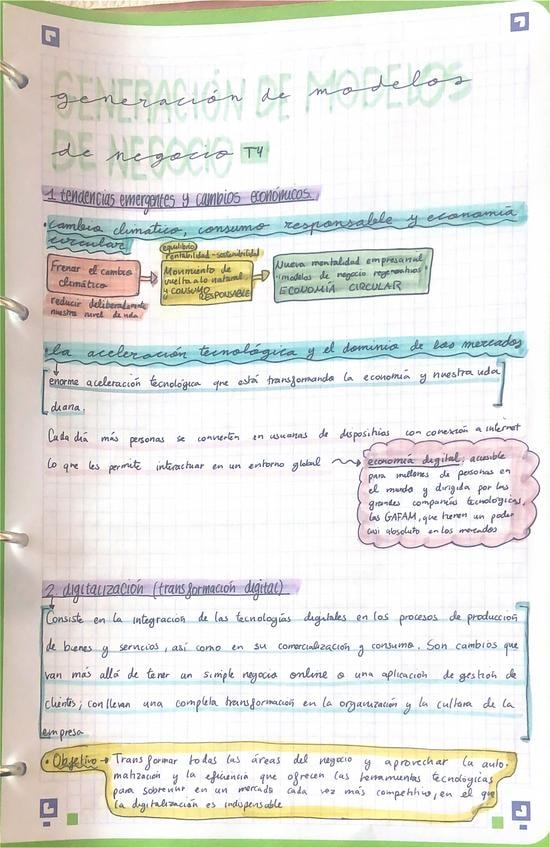 GENERACIÓN DE MODELOS
generación de modelos
DE NEGOCIO
de negocio T4
1. tendencias emergentes y cambios económicos.
• cambio climático, consumo responsable y economía
circular
equilibrio
rentabilidad-sostenibilidad
Frenar el cambio
climático
reducir deliberadamente
nuestro nivel de vida
Movimiento de
vuelta a lo natural
y CONSUMO
RESPONSABLE
Nueva mentalidad empresarial
"modelos de negocio regenerativos"
ECONOMÍA CIRCULAR
• la aceleración tecnológica y el dominio de los mercados
enorme aceleración tecnológica que está transformando la economía y nuestra vida
diaria.
Cada día más personas se convierten en usuarias de dispositivos con conexión a internet
lo que les permite interactuar en un entorno global
economía digital: accesible
para millones de personas en
el mundo y dirigida por las
grandes compañías tecnológicas,
las GAFAM, que tienen un poder
casi absoluto en los mercados
2. digitalización (transformación digital)
Consiste en la integración de las tecnologías digitales en los procesos de producción
de bienes y servicios, así como en su comercialización y consumo. Son cambios que
van más allá de tener un simple negocio online o una aplicación de gestión de
clientes; conllevan una completa transformación en la organización y la cultura de la
empresa
• Objetivo → Transformar todas las áreas del negocio y aprovechar la auto-
matización y la eficiencia que ofrecen las herramientas tecnológicas
para sobrevivir en un mercado cada vez más competitivo, en el que
la digitalización es indispensable